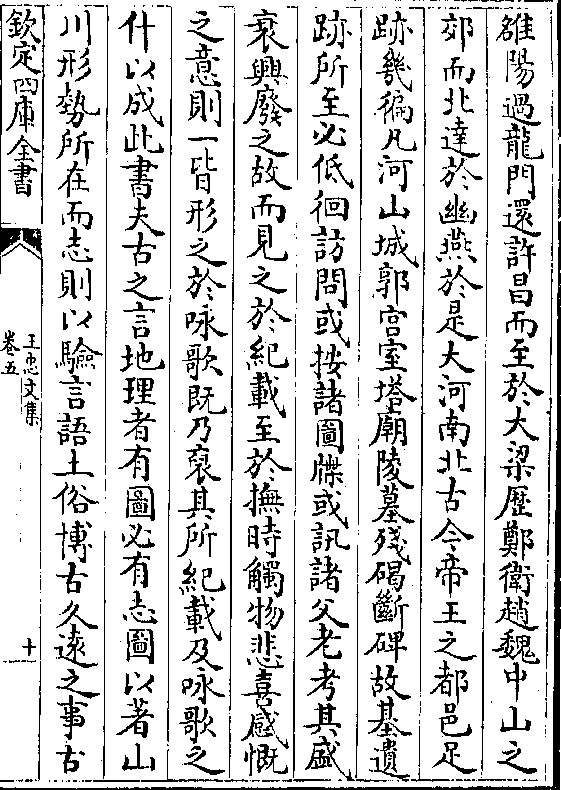 雒陽過龍門還許昌而至於大梁歷鄭衛趙魏中山之
郊而北達於幽燕於是大河南北古今帝王之都邑足
跡幾徧凡河山城郭宫室塔廟陵墓殘碣斷碑故基遺
跡所至必低徊訪問或按諸圖牒或訊諸父老考其盛
衰興廢之故而見之於紀載至於撫時觸物悲喜感慨
之意則一皆形之於咏歌既乃裒其所紀載及咏歌之
什以成此書夫古之言地理者有圖必有志圖以著山
川形勢所在而志則以驗言語土俗博古久逺之事古
欽定四庫全書
王忠文集
卷五
十